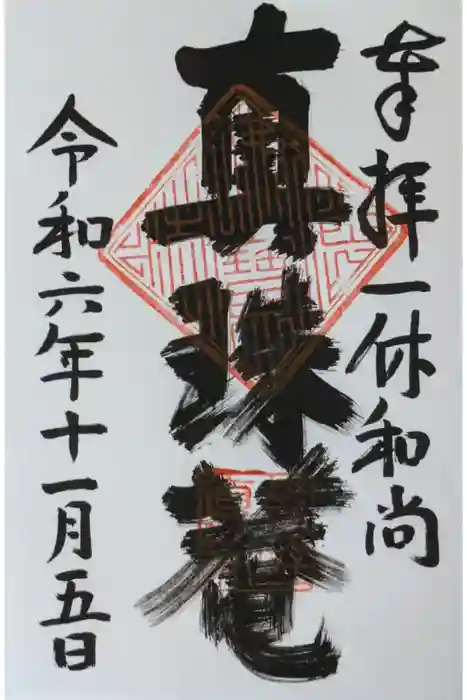 奉拝一休和尚
真珠菴
令和六年十一月五日